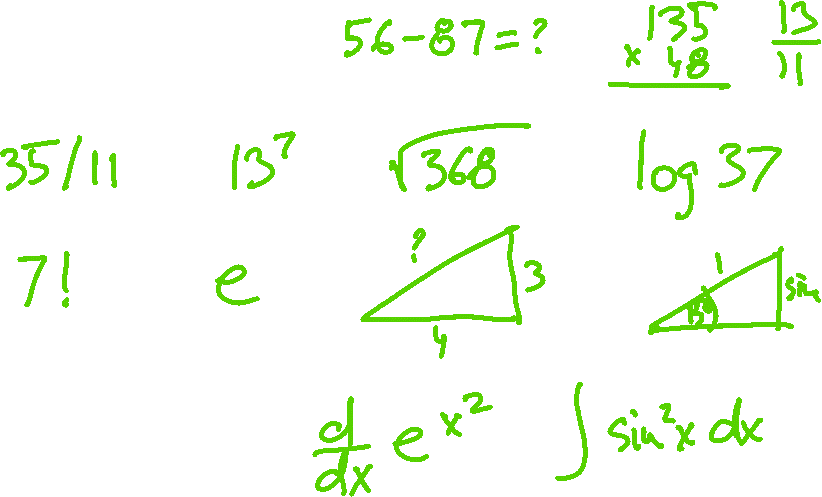 56-87=? 135 13
× 48 11
35/11 13⁷ √368 log 37
7! e ? 3 1 sin
4
d/dx e^x² ∫ sin²x dx